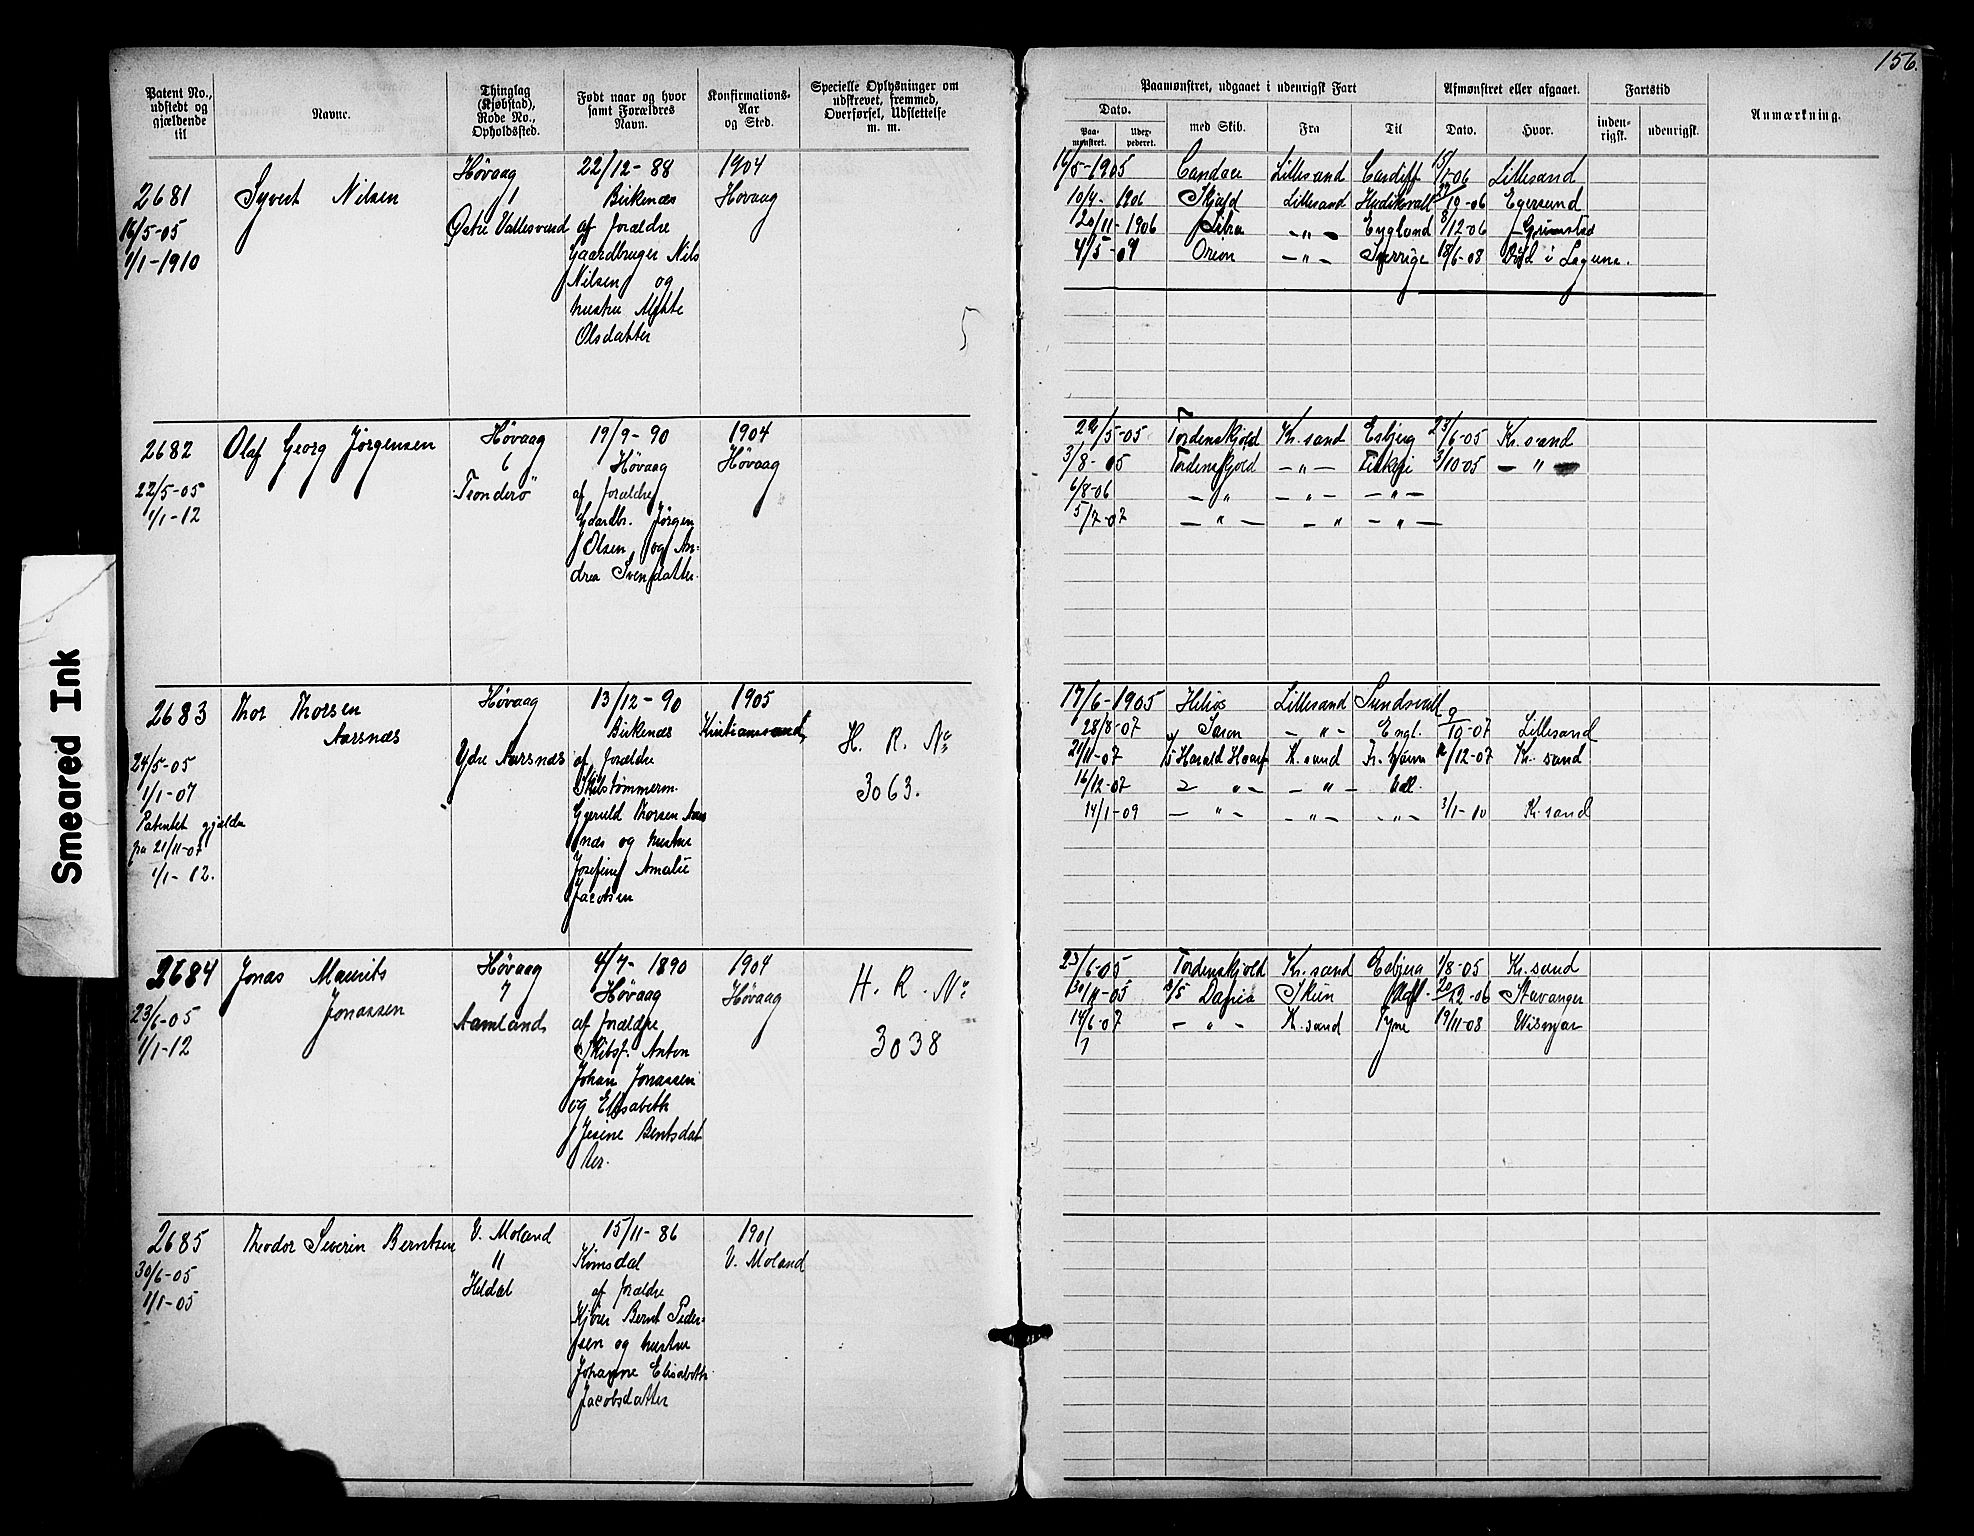 156.
Smeared Ink
Patent No., udstedt og gjældende til
Navne.
Thinglag (Kjøbstad), Rode No., Opholdssted.
Født naar og hvor samt Forældres Navn.
Konfirmations-Aar og Sted.
Specielle Oplysninger om udskrevet, fremmed, Overførsel, Udslettelse m. m.
Paamønstret, udgaaet i udenrigsk Fart
Afmønstret eller afgaaet.
Fartstid
Anmærkning.
Dato.
Paa-mønstret.
med Skib.
Fra
Til
Dato.
Hvor.
inden-rigsk.
udenrigsk.
2681
16/5-05
1/1-1910
Syvert Nilsen
Høvaag
1
Østre Vallesverd
22/12-88
Birkenæs
af forældre
Gaardbruger Nils
Nilsen og
hustru
Olsdatter
1904
Høvaag
5
16/5-1905 Lillesand Cardiff 15/1-06 Lillesand
10/4-1906 Skjold Lillesand Hudiksvall 10-06 Egersund
20/11-1906 Libra —„— England 8/12-06 Grimstad
4/5-07 Orion —„— Sverrige 18/6-08 Død i Laguna.
2682
22/5-05
1/1-12
Olaf Georg Jørgensen
Høvaag
6
Trønderö
19/9-90
Høvaag
af forældre
Gaardbr. Jørgen
Olsen og An-
drea Svendsdatter.
1904
Høvaag
22/5-05 Tordenskjold Kr.sand Esbjerg 23/6-05 Kr.sand
3/8-05 Tordenskjold —„— Fiskeri 3/10-05 —„—
6/8-06 —„— —„— —„—
5/7-07 —„— —„— —„—
2683
24/5-05
1/1-07
Patentet gjælder
fra 21/11-07
1/1-12.
Thor Thorsen
Aarsnæs
Høvaag
Ydre Aarsnæs
13/12-90
Birkenæs
af forældre
Skibstømmerm.
Gjeruld Thorsen Aars
næs og hustru
Josefine Amalie
Jacobsen
1905
Kristianssand
H. R. No
3063.
17/6-1905 Helios Lillesand Sundsvall
28/8-07 Saron —„— Engl. 9/10-07 Lillesand
21/11-07 D/S Harald Haarf K.sand 12-07 Kr.sand
16/12-07 —„— —„— Udl.
14/1-09 —„— —„— —„— 3/1-10 Kr.sand
2684
23/6-05
1/1-12
Jonas Maurits
Jonassen
Høvaag
7
Aamland
4/7-1890
Høvaag
af forældre
Skibsf. Anton
Johan Jonassen
og Elisabeth
Jesine Bentsdat
ter.
1904
Høvaag
H. R. No
3038
23/6-05 Tordenskjold Kr.sand Esbjerg 1/8-05 Kr.sand
30/11-05 D/S Skien Udl. 20/12-06 Stavanger
14/6-07 —„— K.sand Tyne 19/11-08 Wismar
2685
30/6-05
1/1-05
Theodor Severin Berntsen
V. Moland
11
Heldal
15/11-86
Kømsdal
af forældre
Bernt Peder-
sen og hustru
Johanne Elisabeth
Jacobsdatter
1901
V. Moland